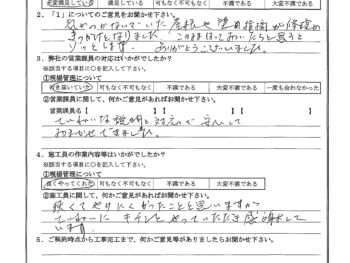 大変満足している 満足している 可もなく不可もなく 不満である 大変不満である
2.「1」についてのご意見をお聞かせ下さい。
気がつかないでいた
きっかけとなりました。このままほっておいたらと思うと
ゾッとします。ありがとうございました。
3.弊社の営業課員の対応はいかがでしたか?
※該当する項目に○を記入して下さい。
①現場管理について
行き届いていた 可もなく不可もなく 不満である 大変不満である 一度も会わなかった
②営業課員に関して、何かご意見があればお聞かせ下さい。
営業課員名【 】【 】【 】
ていねいな説明と対応で安心して
おまかせできました。
4.施工員の作業内容等はいかがでしたか?
※該当する項目に○を記入して下さい。
①現場管理について
良くやってくれた 可もなく不可もなく 不満である 大変不満である
②施工員に関して、何かご意見があればお聞かせ下さい。
狭くてやりにくかったことと思いますが
ていねいに キチンとやっていただき感謝して
います。
5.ご契約時点から工事完工まで、何かご意見等がありましたらお聞かせ下さい。